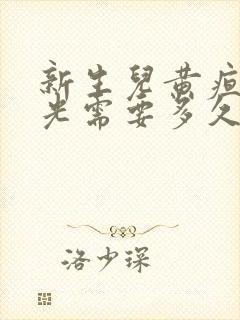 新生兒黃疸
光需要多久
洛少琛